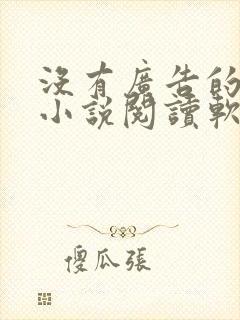 沒有廣告的
小說閱讀軟
傻瓜張